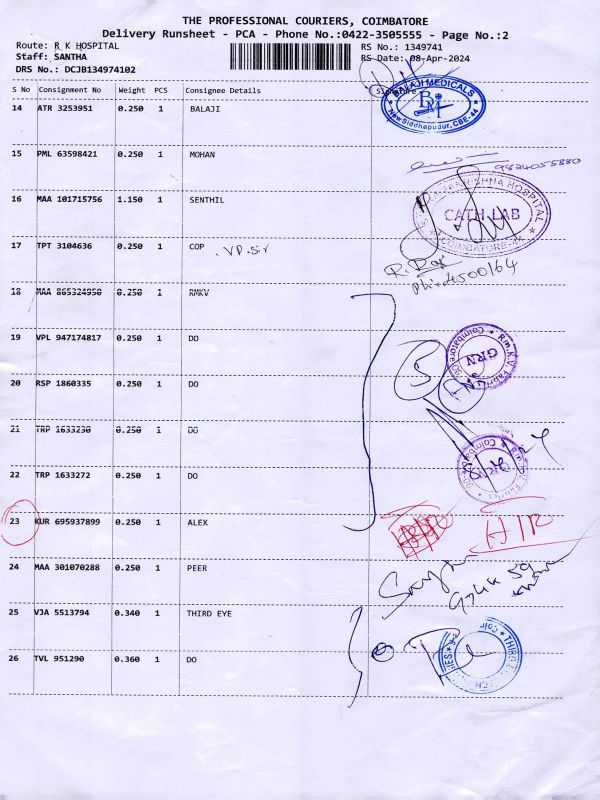 THE PROFESSIONAL COURIERS, COIMBATORE
Delivery Runsheet - PCA - Phone No.:0422-3505555 - Page No.:2
Route: R K HOSPITAL RS No.: 1349741
Staff: SANTHA RS Date: 08-Apr-2024
DRS No.: DCJB134974102
S No Consignment No Weight PCS Consignee Details Signature
BALAJI MEDICALS
BM
New Siddhapudur, CBE-44
14 ATR 3253951 0.250 1 BALAJI
15 PML 63598421 0.250 1 MOHAN
9824055880
16 MAA 101715756 1.150 1 SENTHIL
HOSPITAL
CATH LAB
COIMBATORE-44
17 TPT 3104636 0.250 1 COP . V.P. Sir
18 MAA 865324950 0.250 1 RMKV
19 VPL 947174817 0.250 1 DO
Coimbatore
GRN
20 RSP 1860335 0.250 1 DO
21 TRP 1633230 0.250 1 DO
22 TRP 1633272 0.250 1 DO
GRN
23 KUR 695937899 0.250 1 ALEX
24 MAA 301070288 0.250 1 PEER
25 VJA 5513794 0.340 1 THIRD EYE
26 TVL 951290 0.360 1 DO
THIRD